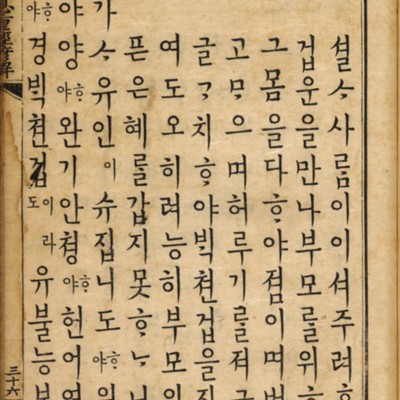 셜ᄉᆞ사ᄅᆞᆷ이이셔주려
겁운을만나부모를위
그몸을다ᄒᆞ야졈이며
고ᄆᆞ으며허루기를져
글ᄀᆞ치ᄒᆞ야ᄇᆡᆨ쳔겁을
여도오히려능히부모
픈은혜를갑지못ᄒᆞᄂᆞ니
가ᄉᆞ유인이슈집니도ᄒᆞ야
야양ᄒᆞ야완기안쳥ᄒᆞ야헌어
ᄒᆞ야경ᄇᆡᆨ쳔겁이라도유불능보
三十六